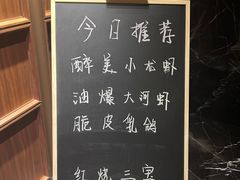 今日推荐
醉美小龙虾
油爆大河虾
脆皮乳鸽
红烧三宝